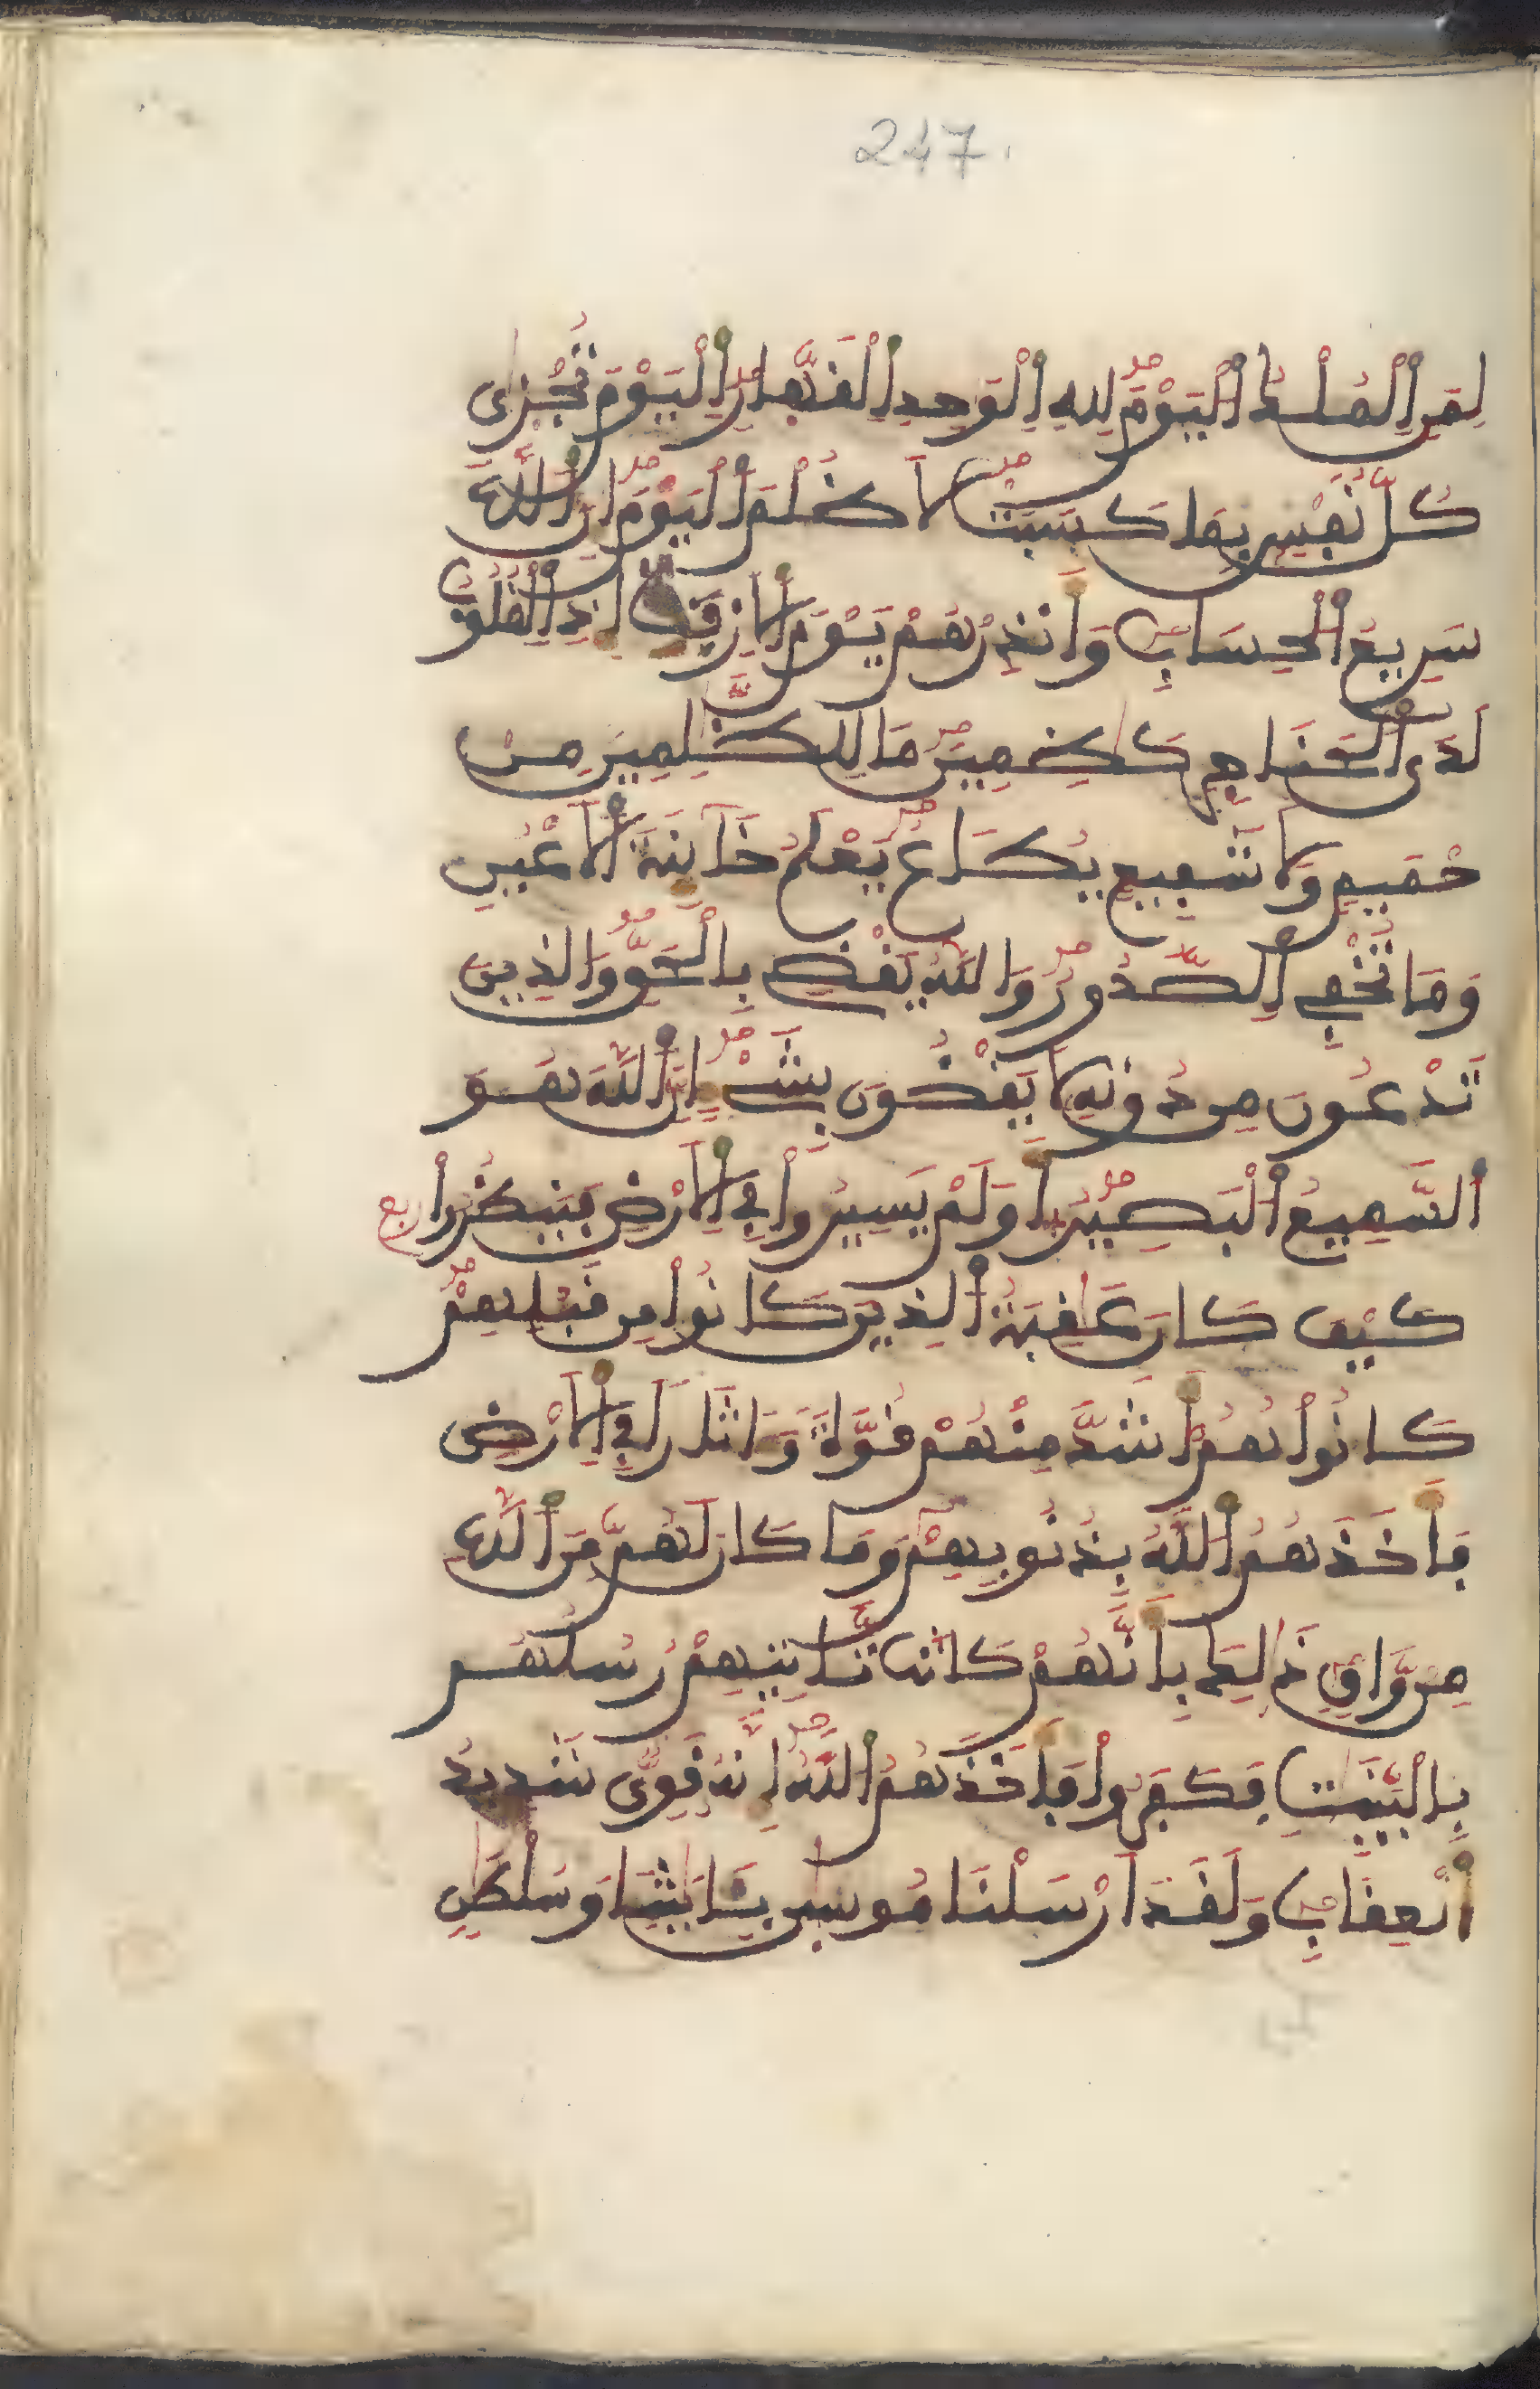 247.
لِمَنِ اِ۬لْمُلْكُ اُ۬لْيَوْمَ لِلهِ اِ۬لْوَٰحِدِ اِ۬لْقَهّ۪ارِ اِ۬لْيَوْمَ تُجْزَىٰ
كُلُّ نَفْسٍ بِمَا كَسَبَتْ لَا ظُلْمَ اَ۬لْيَوْمَ إِنَّ اَ۬للَّهَ
سَرِيعُ اُ۬لْحِسَابِ وَأَنذِرْهُمْ يَوْمَ اَ۬لَازِفَةِ إِذِ اِ۬لْقُلُوبُ
لَدَى اَ۬لْحَنَاجِرِ كَٰظِمِينَ مَا لِلظَّٰلِمِينَ مِنْ
حَمِيمٍ وَلَا شَفِيعٍ يُطَاعُ يَعْلَمُ خَآئِنَةَ اَ۬لَاعْيُنِ
وَمَا تُخْفِے اِ۬لصُّدُورُ وَاللَّهُ يَقْضِے بِالْحَقِّ وَالذِينَ
تَدْعُونَ مِن دُونِهِ لَا يَقْضُونَ بِشَےْءٍ اِنَّ اَ۬للَّهَ هُوَ
اَ۬لسَّمِيعُ اُ۬لْبَصِيرُ أَوَلَمْ يَسِيرُوا۟ فِے اِ۬لَارْضِ فَيَنظُرُوا۟ ربع
كَيْفَ كَانَ عَٰقِبَةُ اُ۬لذِينَ كَانُوا۟ مِن قَبْلِهِمْ
كَانُوا۟ هُمُ أَشَدَّ مِنْهُمْ قُوَّةً وَءَاثَارًا فِے اِ۬لَارْضِ
فَأَخَذَهُمُ اُ۬للَّهُ بِذُنُوبِهِمْ وَمَا كَانَ لَهُم مِّنَ اَ۬للَّهِ
مِنْ وَّاقٍ ذَٰلِكَ بِأَنَّهُمْ كَانَت تَّاتِيهِمْ رُسُلُهُم
بِالْبَيِّنَٰتِ فَكَفَرُوا۟ فَأَخَذَهُمُ اُ۬للَّهُ إِنَّهُ قَوِيٌّ شَدِيدُ
اُ۬لْعِقَابِ وَلَقَدَ اَرْسَلْنَا مُوسَىٰ بِـَٔايَٰتِنَا وَسُلْطَٰنٍ